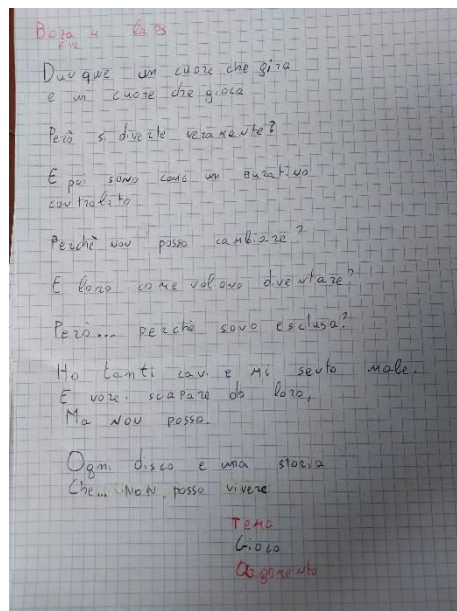 Dunque un cuore che gira
e un cuore che gioca
Però si diverte veramente?
E poi sono come un buratino
controlato
Perchè non posso cambiare?
E loro come voliono diventare?
Però... perchè sono esclusa?
Ho tanti cavi e mi sento male.
E vorei scapare da loro,
Ma non posso.
Ogni disco e una storia
Che... NON posso vivere
Tema
Gioco
Argomento